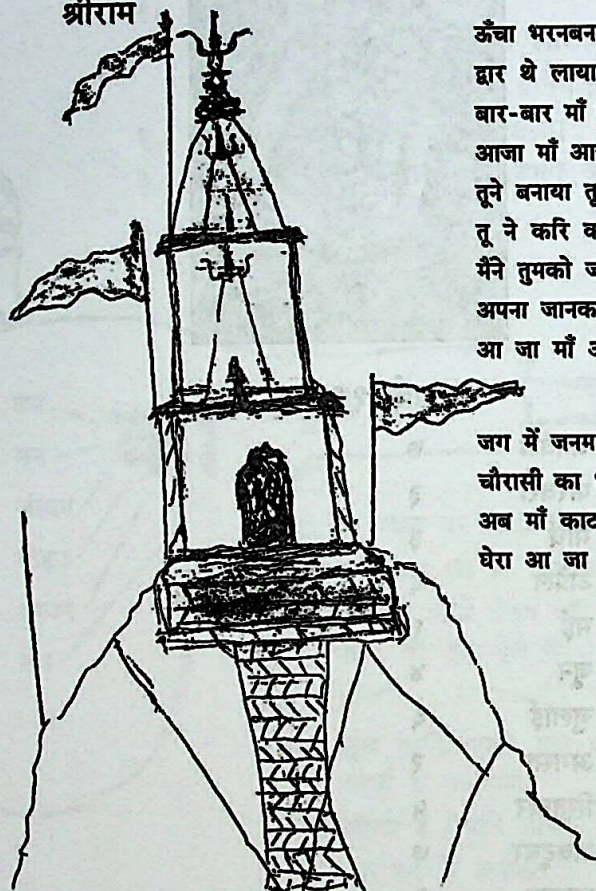 श्रीराम
ऊँचा भरनबन
द्वार थे लाया
बार-बार माँ
आजा माँ आ
तूने बनाया तू
तू ने करि क
मैंने तुमको ज
अपना जानक
आ जा माँ अ
जग में जनम
चौरासी का
अब माँ काट
घेरा आ जा